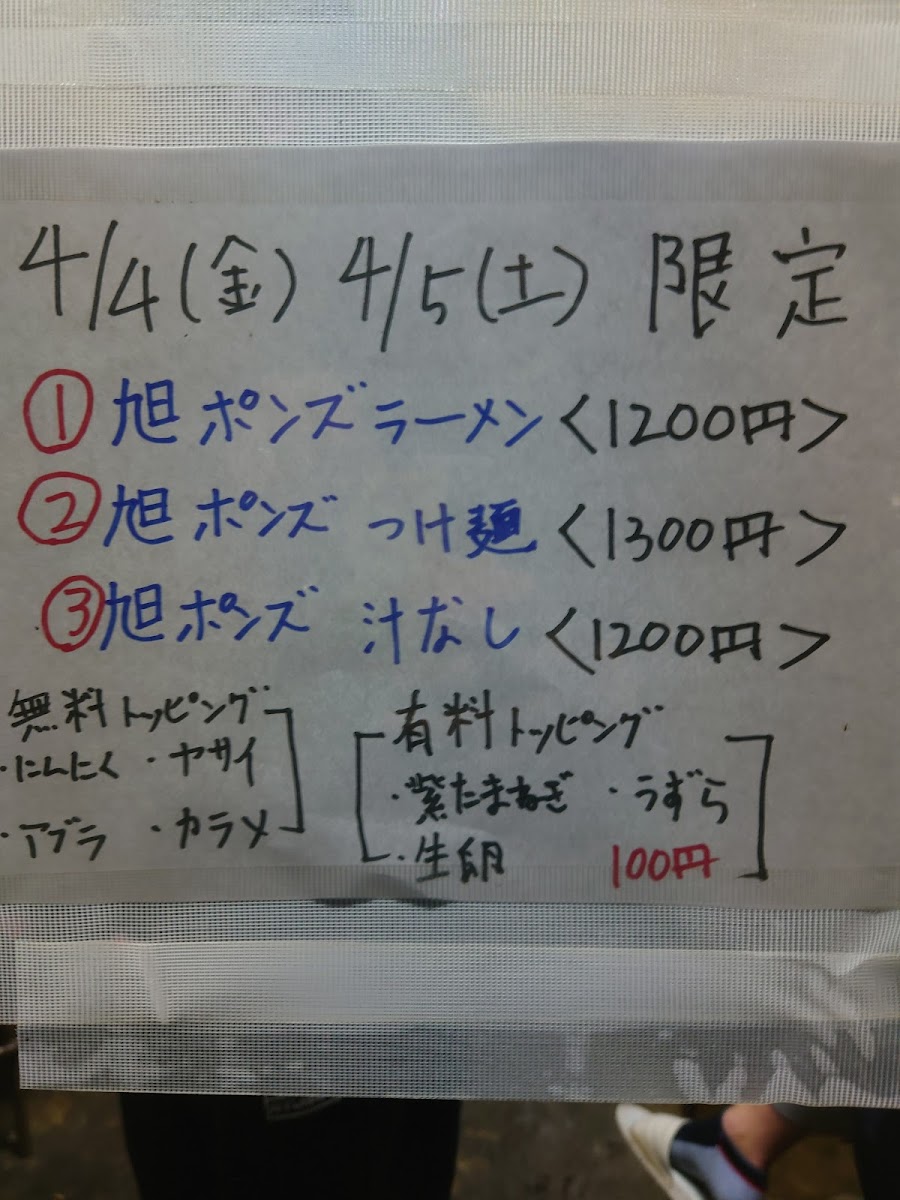 4/4(金) 4/5(土) 限定
①旭ポンズラーメン<1200円>
②旭ポンズ つけ麺<1300円>
③旭ポンズ 汁なし<1200円>
無料トッピング
・にんにく ・ヤサイ
・アブラ ・カラメ
有料トッピング
・紫たまねぎ ・うずら
・生卵 100円